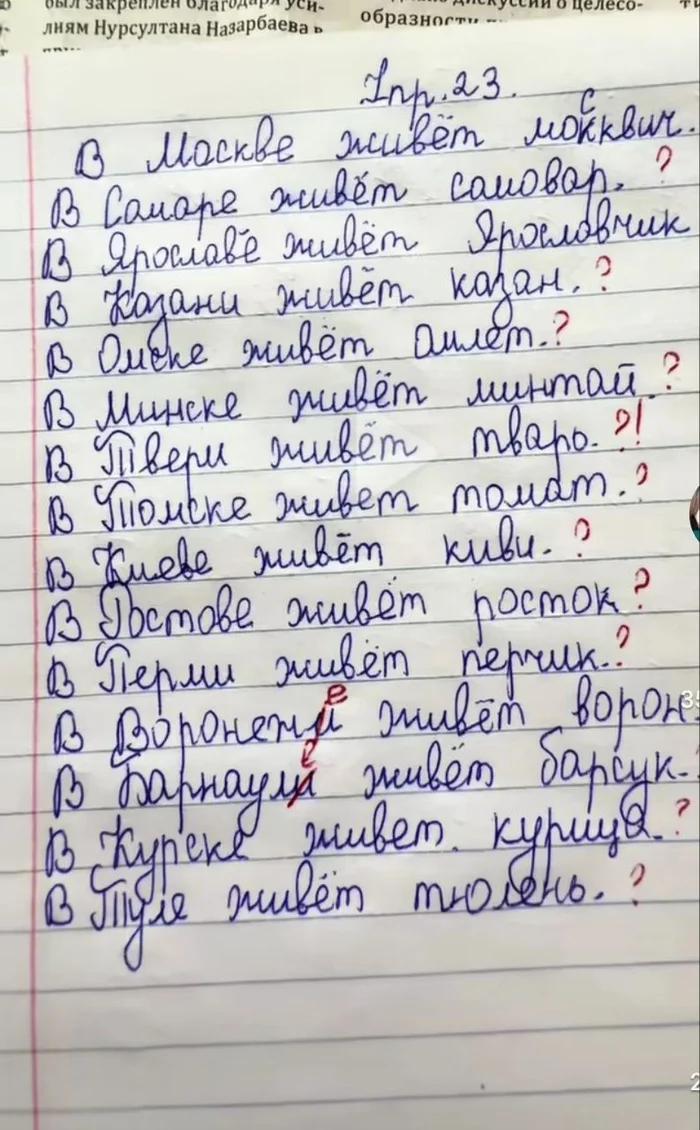 был закреплён благодаря уси-
лиям Нурсултана Назарбаева в
дискуссии о целесо-
образности
Упр. 23.
с
В Москве живёт моквич.
В Самаре живёт самовар. ?
В Ярославе живёт Ярославчик
В Казани живёт казан. ?
В Омске живёт омлет. ?
В Минске живёт минтай. ?
В Твери живёт тварь. ?!
В Томске живет томат. ?
В Киеве живёт киви. ?
В Ростове живёт росток ?
В Перми живёт перчик. ?
е
В Воронежи живёт ворон
е
В Барнаули живёт барсук.
В Курске живет. курица. ?
В Туле живёт тюлень. ?